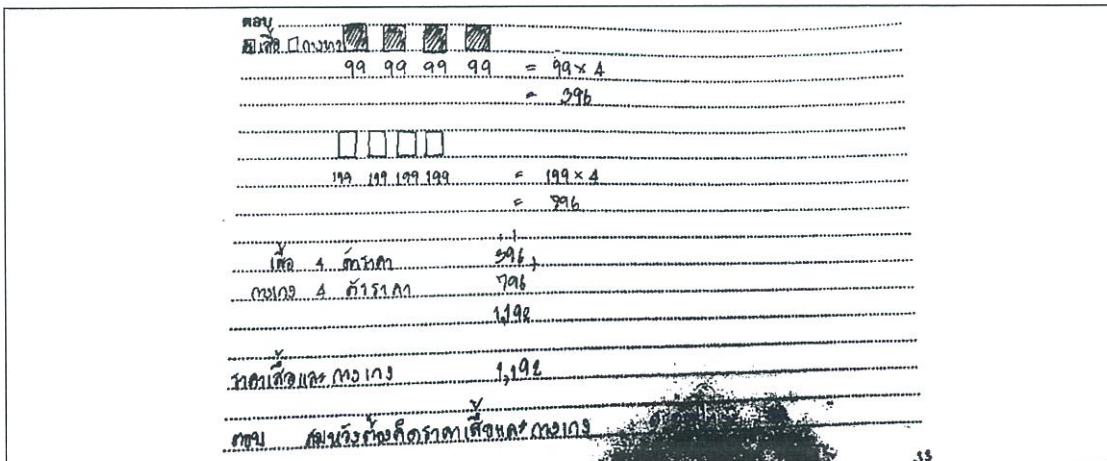 ตอบ
เสื้อ กางเกง
99 99 99 99 = 99 × 4
= 396
199 199 199 199 = 199 × 4
= 796
เสื้อ 4 ตัวราคา 396 +
กางเกง 4 ตัวราคา 796
1,192
ราคาเสื้อและกางเกง 1,192
ตอบ สมหวังต้องคิดราคาเสื้อและกางเกง
33